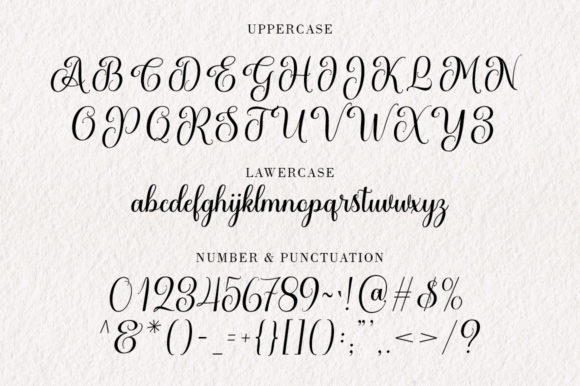 UPPERCASE
ABCDEFGHIJKLMN
OPQRSTUVWXYZ
LAWERCASE
abcdefghijklmnopqrstuvwxyz
NUMBER & PUNCTUATION
0123456789~`!@#$%
^&*()-_=+{}[]():;"',.<>/?